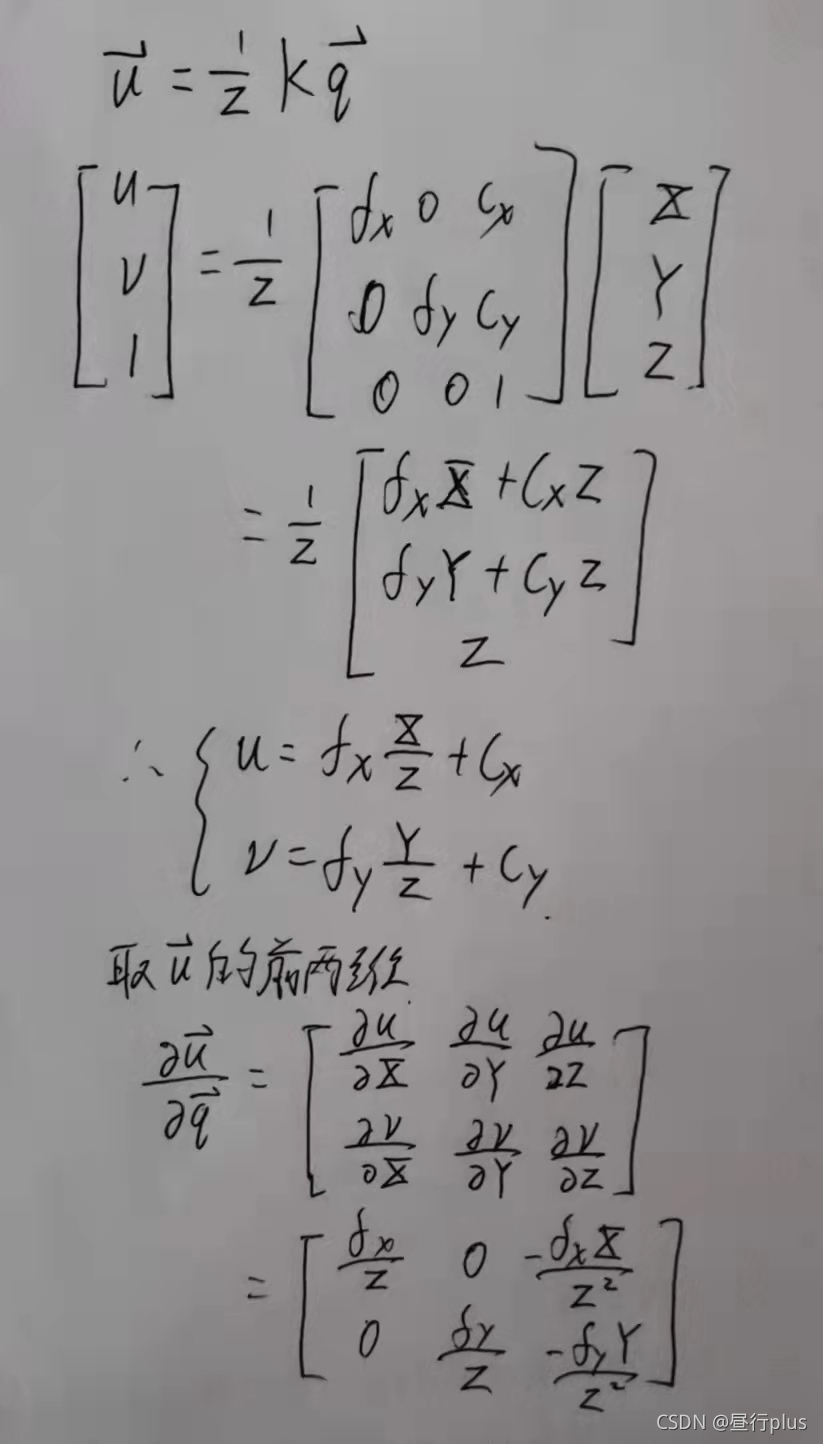 $\vec{u} = \frac{1}{Z} K \vec{q}$
$\begin{bmatrix} u \\ v \\ 1 \end{bmatrix} = \frac{1}{Z} \begin{bmatrix} f_x & 0 & c_x \\ 0 & f_y & c_y \\ 0 & 0 & 1 \end{bmatrix} \begin{bmatrix} X \\ Y \\ Z \end{bmatrix}$
$= \frac{1}{Z} \begin{bmatrix} f_x X + c_x Z \\ f_y Y + c_y Z \\ Z \end{bmatrix}$
$\therefore \begin{cases} u = f_x \frac{X}{Z} + c_x \\ v = f_y \frac{Y}{Z} + c_y. \end{cases}$
取 $\vec{u}$ 的前两维.
$\frac{\partial \vec{u}}{\partial \vec{q}} = \begin{bmatrix} \frac{\partial u}{\partial X} & \frac{\partial u}{\partial Y} & \frac{\partial u}{\partial Z} \\ \frac{\partial v}{\partial X} & \frac{\partial v}{\partial Y} & \frac{\partial v}{\partial Z} \end{bmatrix}$
$= \begin{bmatrix} \frac{f_x}{Z} & 0 & -\frac{f_x X}{Z^2} \\ 0 & \frac{f_y}{Z} & -\frac{f_y Y}{Z^2} \end{bmatrix}$
CSDN @昼行plus